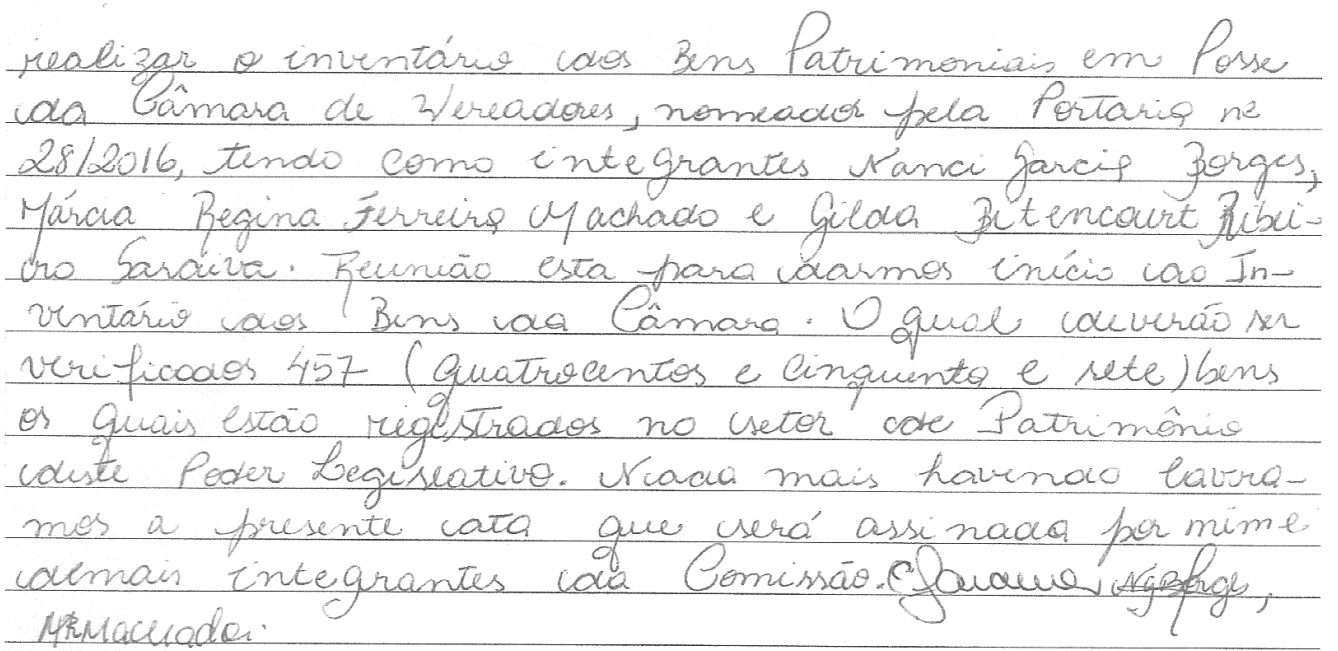 realizar o inventário dos Bens Patrimoniais em Posse
da Câmara de Vereadores, nomeados pela Portaria nº
28/2016, tendo como integrantes Nanci Garcia Borges,
Márcia Regina Ferreira Machado e Gilda Bitencourt Ribei-
ro Saraiva. Reunião esta para darmos início ao In-
ventário dos Bens da Câmara. O qual deverão ser
verificados 457 (quatrocentos e cinquenta e sete) bens
os quais estão registrados no setor de Patrimônio
deste Poder Legislativo. Nada mais havendo lavra-
mos a presente ata que será assinada por mim e
demais integrantes da Comissão. GSaraiva, NgBorges,
MRMachado.